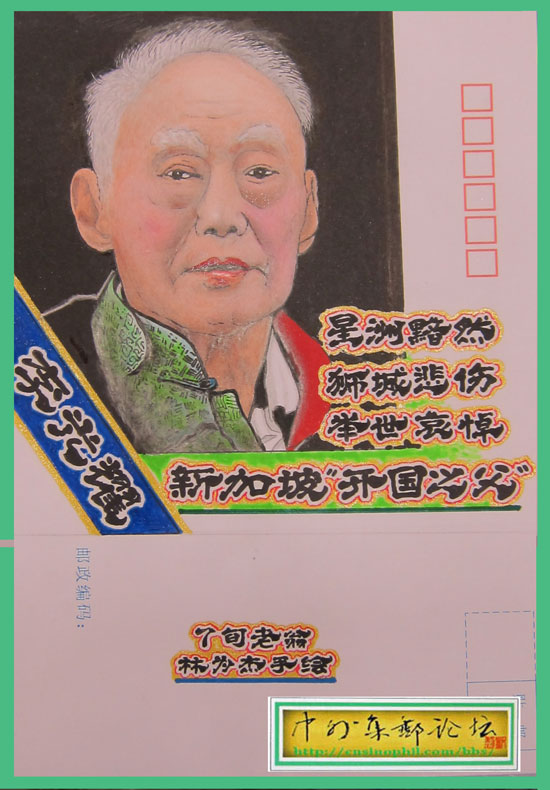 星洲黯然
狮城悲伤
举世哀悼
李光耀
新加坡"开国之父"
邮政编码:
7旬老翁
林为杰手绘
中外集邮论坛
http://cnsinophil.com/bbs/